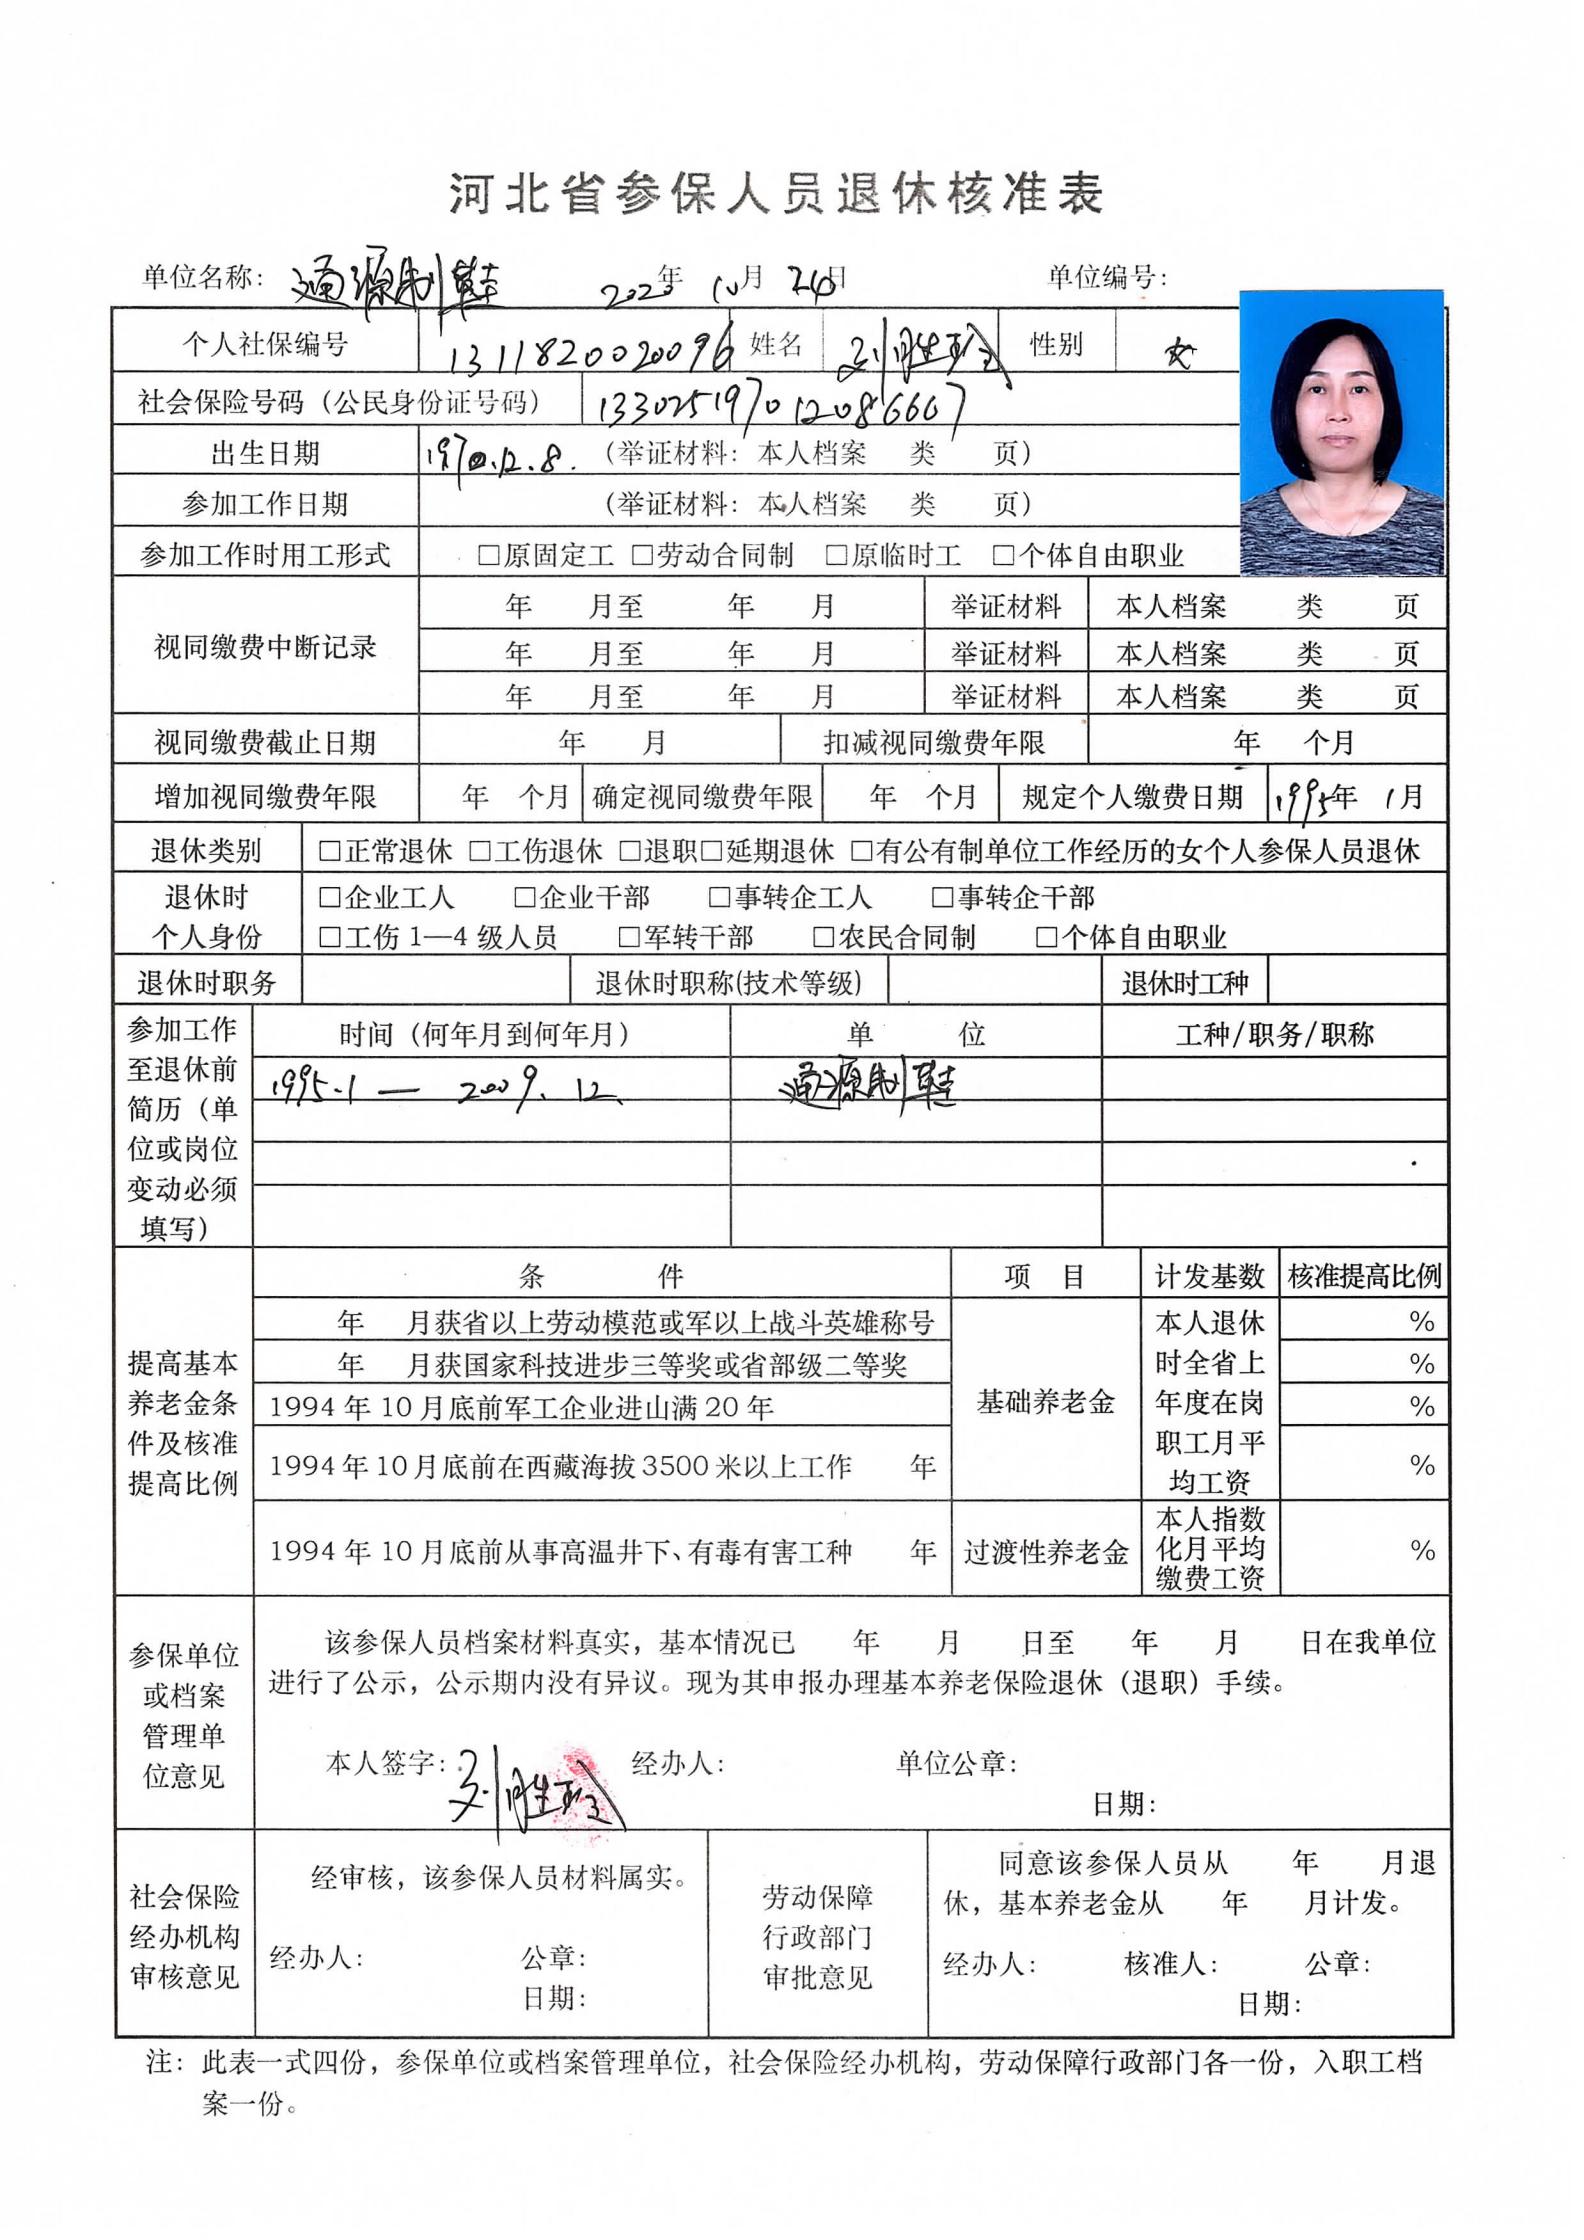 河北省参保人员退休核准表
单位名称：通源制鞋 2020年10月24日 单位编号：
个人社保编号 1311820020096 姓名 刘胜珍 性别 女
社会保险号码（公民身份证号码） 133025197012086667
出生日期 1970.12.8. （举证材料：本人档案 类 页）
参加工作日期 （举证材料：本人档案 类 页）
参加工作时用工形式 □原固定工 □劳动合同制 □原临时工 □个体自由职业
视同缴费中断记录
年 月至 年 月 举证材料 本人档案 类 页
年 月至 年 月 举证材料 本人档案 类 页
年 月至 年 月 举证材料 本人档案 类 页
视同缴费截止日期 年 月 扣减视同缴费年限 年 个月
增加视同缴费年限 年 个月 确定视同缴费年限 年 个月 规定个人缴费日期 1995年 1月
退休类别 □正常退休 □工伤退休 □退职□延期退休 □有公有制单位工作经历的女个人参保人员退休
退休时个人身份
□企业工人 □企业干部 □事转企工人 □事转企干部
□工伤1—4级人员 □军转干部 □农民合同制 □个体自由职业
退休时职务 退休时职称(技术等级) 退休时工种
参加工作至退休前简历（单位或岗位变动必须填写）
时间（何年月到何年月） 单 位 工种/职务/职称
1995.1 — 2009.12. 通源制鞋
提高基本养老金条件及核准提高比例
条 件 项 目 计发基数 核准提高比例
年 月获省以上劳动模范或军以上战斗英雄称号 %
年 月获国家科技进步三等奖或省部级二等奖 %
1994年10月底前军工企业进山满20年 %
1994年10月底前在西藏海拔3500米以上工作 年 %
基础养老金 本人退休时全省上年度在岗职工月平均工资
1994年10月底前从事高温井下、有毒有害工种 年 过渡性养老金 本人指数化月平均缴费工资 %
参保单位或档案管理单位意见
该参保人员档案材料真实，基本情况已 年 月 日至 年 月 日在我单位
进行了公示，公示期内没有异议。现为其申报办理基本养老保险退休（退职）手续。
本人签字：刘胜珍 经办人： 单位公章：
日期：
社会保险经办机构审核意见
经审核，该参保人员材料属实。
经办人： 公章：
日期：
劳动保障行政部门审批意见
同意该参保人员从 年 月退
休，基本养老金从 年 月计发。
经办人： 核准人： 公章：
日期：
注：此表一式四份，参保单位或档案管理单位，社会保险经办机构，劳动保障行政部门各一份，入职工档
案一份。